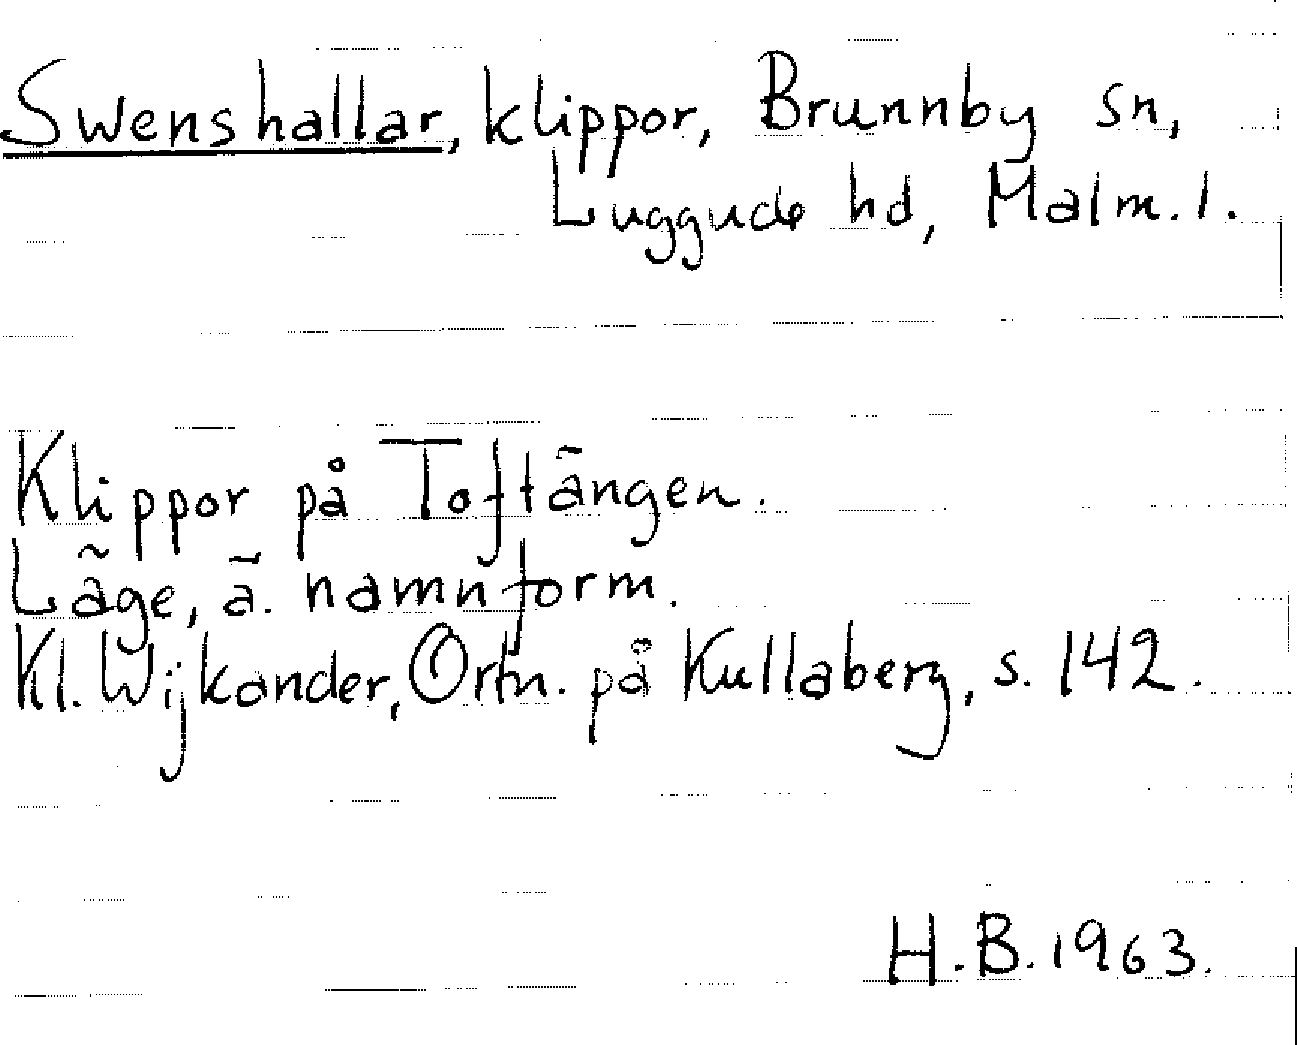 Swenshallar, klippor, Brunnby sn,
Luggude hd, Malm. l.
Klippor på Toftängen.
Läge, ä. namnform.
Kl. Wijkander, Ortn. på Kullaberg, s. 142.
H.B. 1963.